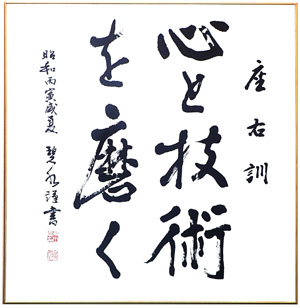 座右訓
心と技術
を磨く
昭和丙寅盛夏 碧泉謹書